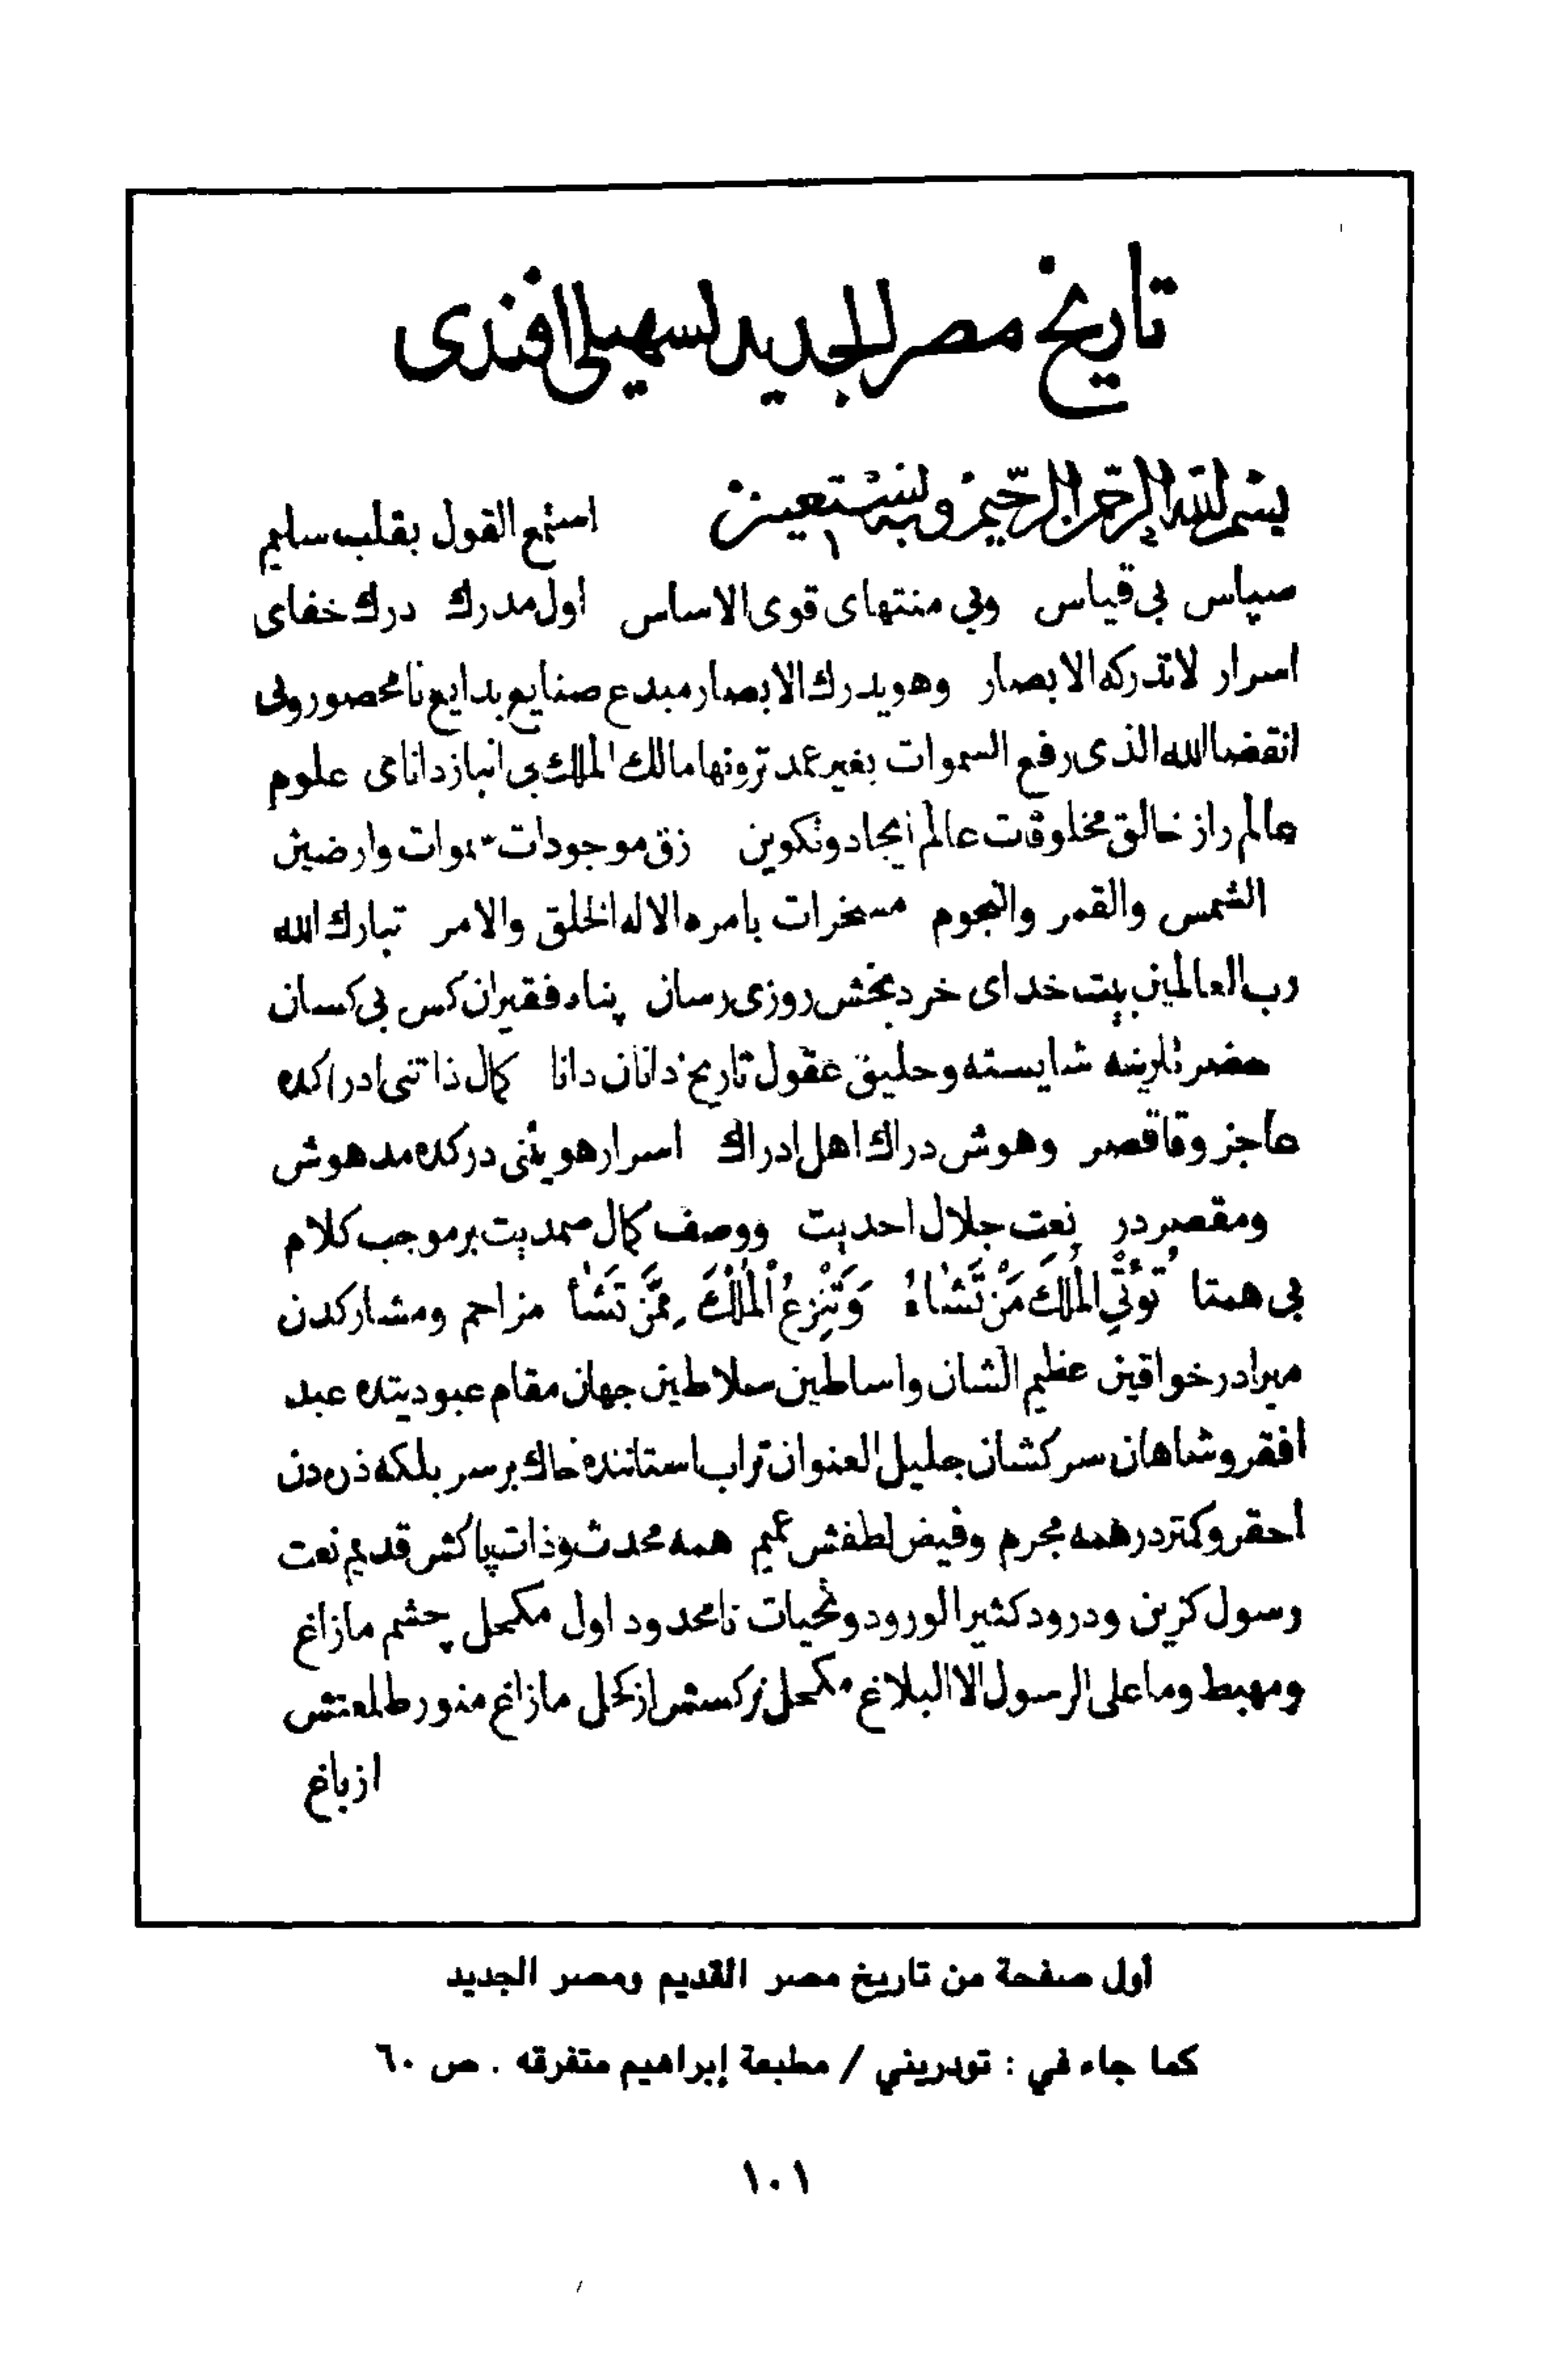 تاريخ مصر الجديد لسهيلى افندى
بسم الله الرحمن الرحيم وبه نستعين استمع القول بقلب سليم
سپاس بى قياس وبى منتهاى قوى الاساس اول مدرك درك خفاى
اسرار لاتدركه الابصار وهو يدرك الابصار مبدع صنايع بدايع نامحصور وبى
انقضا الله الذى رفع السموات بغير عمد ترونها مالك الملك بى انباز داناى علوم
عالم راز خالق مخلوقات عالم ايجاد وتكوين زق موجودات سموات وارضين
الشمس والقمر والنجوم مسخرات بامره الا له الخلق والامر تبارك الله
رب العالمين بيت خداى خرد بخش روزى رسان پناه فقيران كس بى كسان
حضرتلرينه شايسته وحليق عقول تاريخ دانان دانا كمال ذاتنى ادراكده
عاجز وقاقصر وهوش دراك اهل ادراك اسرار هويتنى دركده مدهوش
ومقصر در نعت جلال احديت ووصف كمال صمديت بر موجب كلام
بى همتا تُؤْتِي الْمُلْكَ مَنْ تَشَاءُ وَتَنْزِعُ الْمُلْكَ مِمَّنْ تَشَأ مزاحم ومشاركدن
مبرادر خواقين عظيم الشان واساطين سلاطين جهان مقام عبوديتده عبد
افقر وشاهان سركشان جليل العنوان تراب استاننده خاك بر سر بلكه ذره دن
احقر وكمتردر همه مجرم وفيض لطفش عميم همه محدث وذات پاكش قديم نعت
رسول كزين ودرود كثير الورود وتحيات نامحدود اول مكحل چشم مازاغ
ومهبط وما على الرسول الا البلاغ مكحل نركسش از كحل مازاغ منور طلعتش
ازباغ
أول صفحة من تاريخ مصر القديم ومصر الجديد
كما جاء في : تودريني / مطبعة إبراهيم متفرقه . ص ٦٠
١٠١